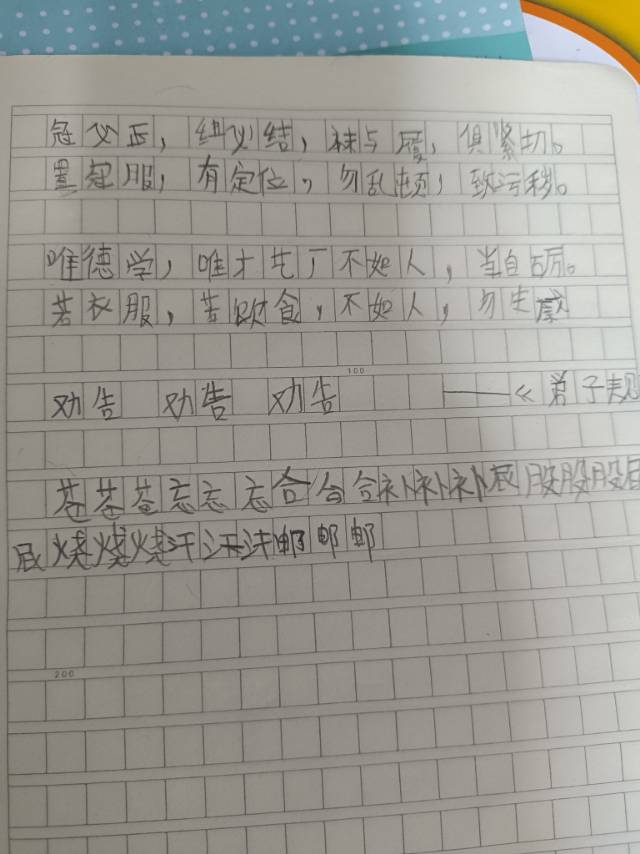 冠必正，纽必结，袜与履，俱紧切。
置冠服，有定位，勿乱顿，致污秽。
唯德学，唯才艺，不如人，当自砺。
若衣服，若饮食，不如人，勿生戚
100
劝告 劝告 劝告 ——《弟子规
苍苍苍忘忘忘合合合补补补辰股股股
烧烧烧汗汗汗邮邮邮
200